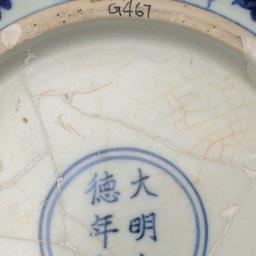 G467
大明
德年